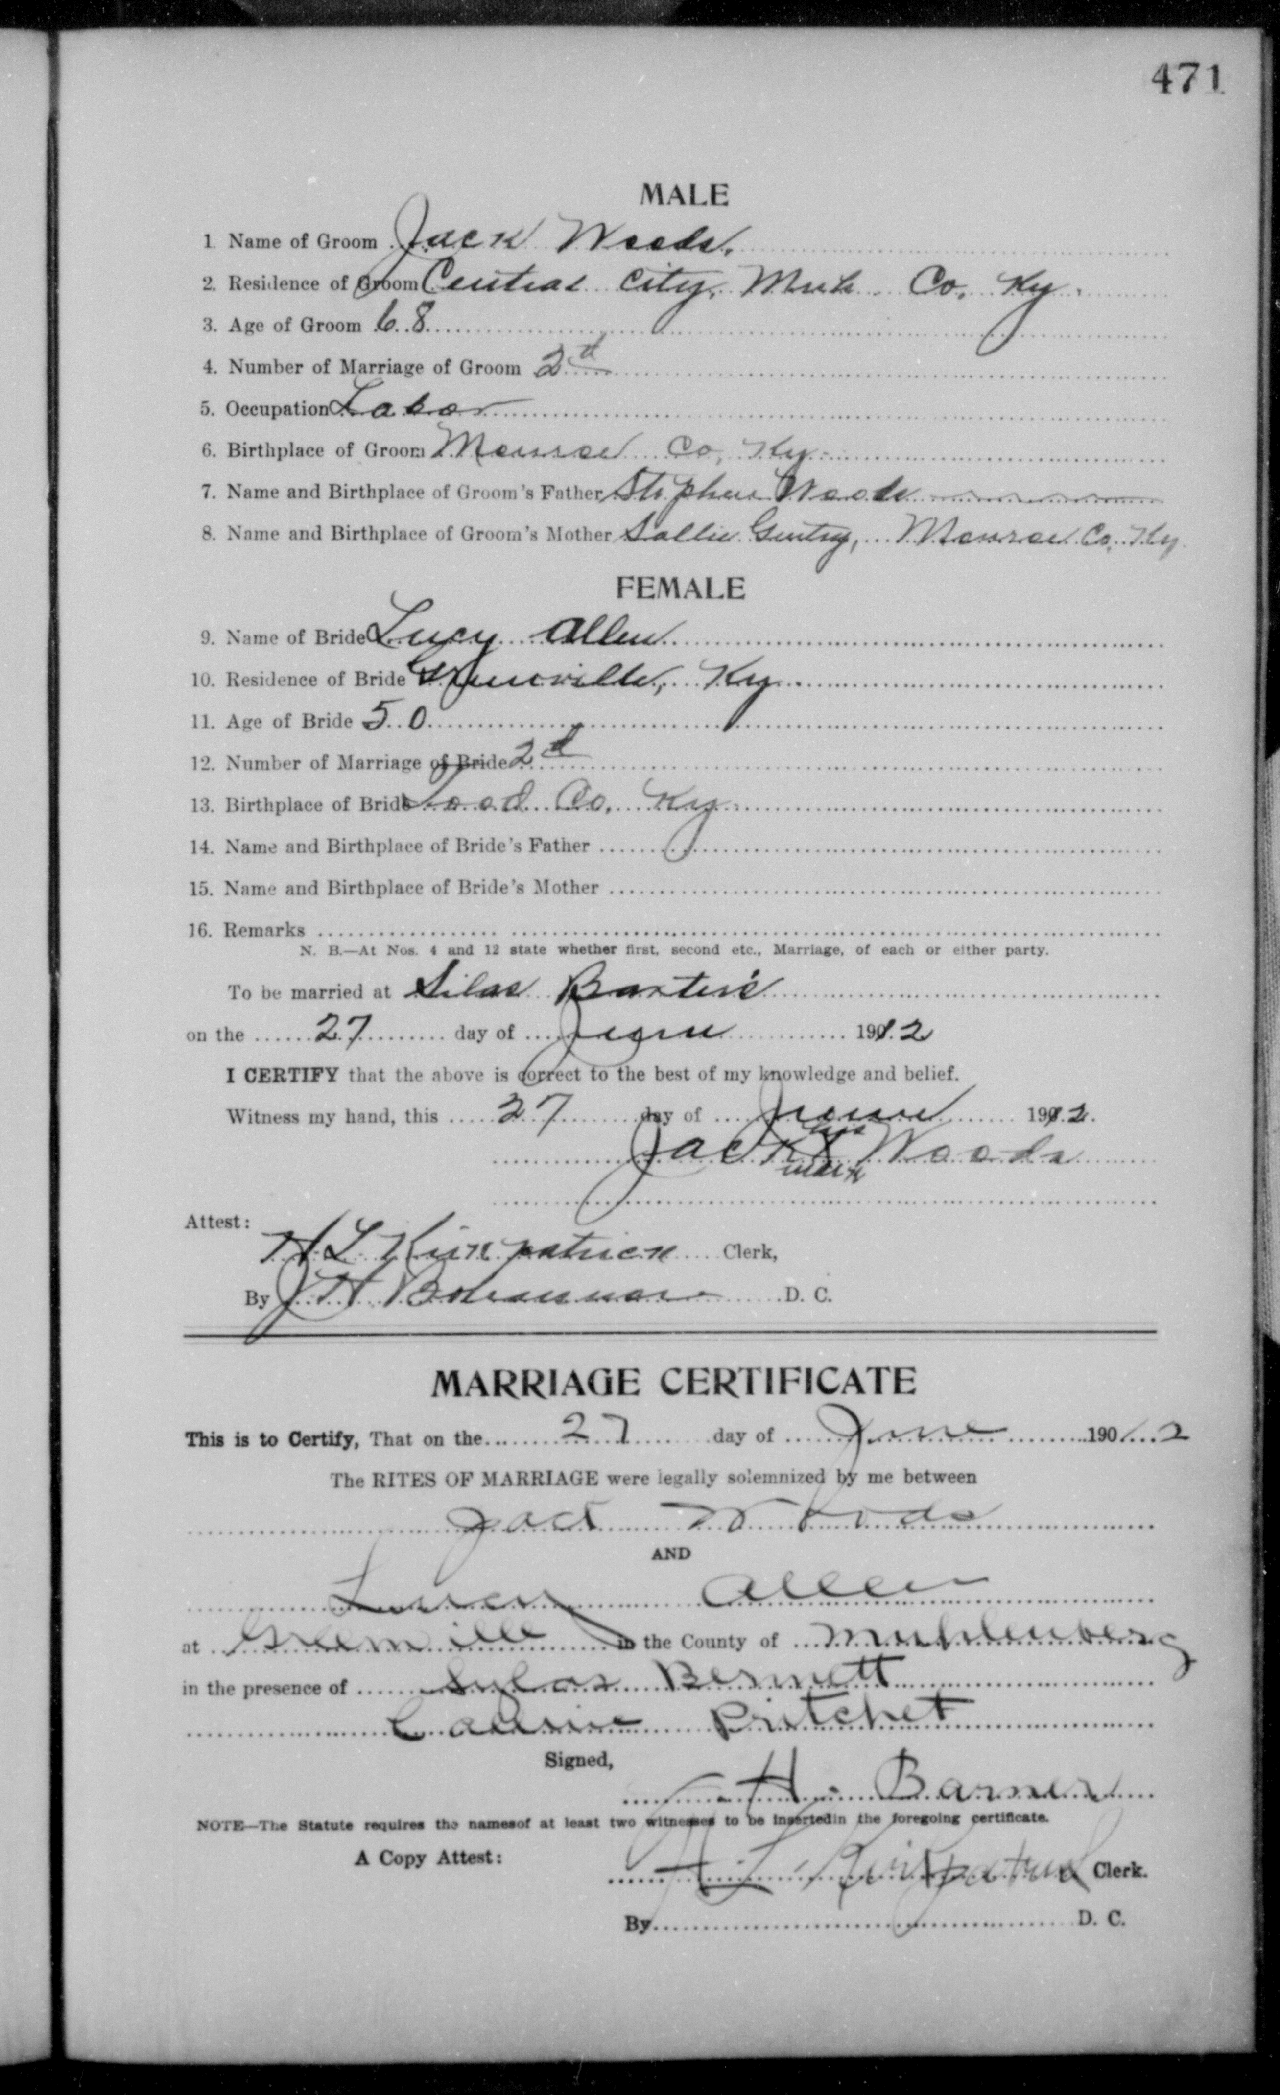 471
MALE
1 Name of Groom Jack Woods.
2. Residence of Groom Central City, Muh. Co. Ky.
3. Age of Groom 68
4. Number of Marriage of Groom 2d
5. Occupation Labor
6. Birthplace of Groom Monroe Co. Ky.
7. Name and Birthplace of Groom's Father Stephen Woods
8. Name and Birthplace of Groom's Mother Sallie Gentry, Monroe Co. Ky
FEMALE
9. Name of Bride Lucy Allen
10. Residence of Bride Greenville, Ky.
11. Age of Bride 50
12. Number of Marriage of Bride 2d
13. Birthplace of Bride Todd Co. Ky.
14. Name and Birthplace of Bride's Father
15. Name and Birthplace of Bride's Mother
16. Remarks
N. B.—At Nos. 4 and 12 state whether first, second etc., Marriage, of each or either party.
To be married at Silas
on the 27 day of June 1912
I CERTIFY that the above is correct to the best of my knowledge and belief.
Witness my hand, this 27 day of June 1912.
his
Jack X Woods
mark
Attest:
H L Kirkpatrick Clerk,
By J H Bohannon D. C.
MARRIAGE CERTIFICATE
This is to Certify, That on the 27 day of June 190 12
The RITES OF MARRIAGE were legally solemnized by me between
Jack Woods
AND
Lucy Allen
at Greenville in the County of Muhlenberg
in the presence of Sylas Bennett
Pritchet
Signed,
H. Barner
NOTE—The Statute requires the namesof at least two witnesses to be insertedin the foregoing certificate.
A Copy Attest: H L Kirkpatrick Clerk.
By D. C.